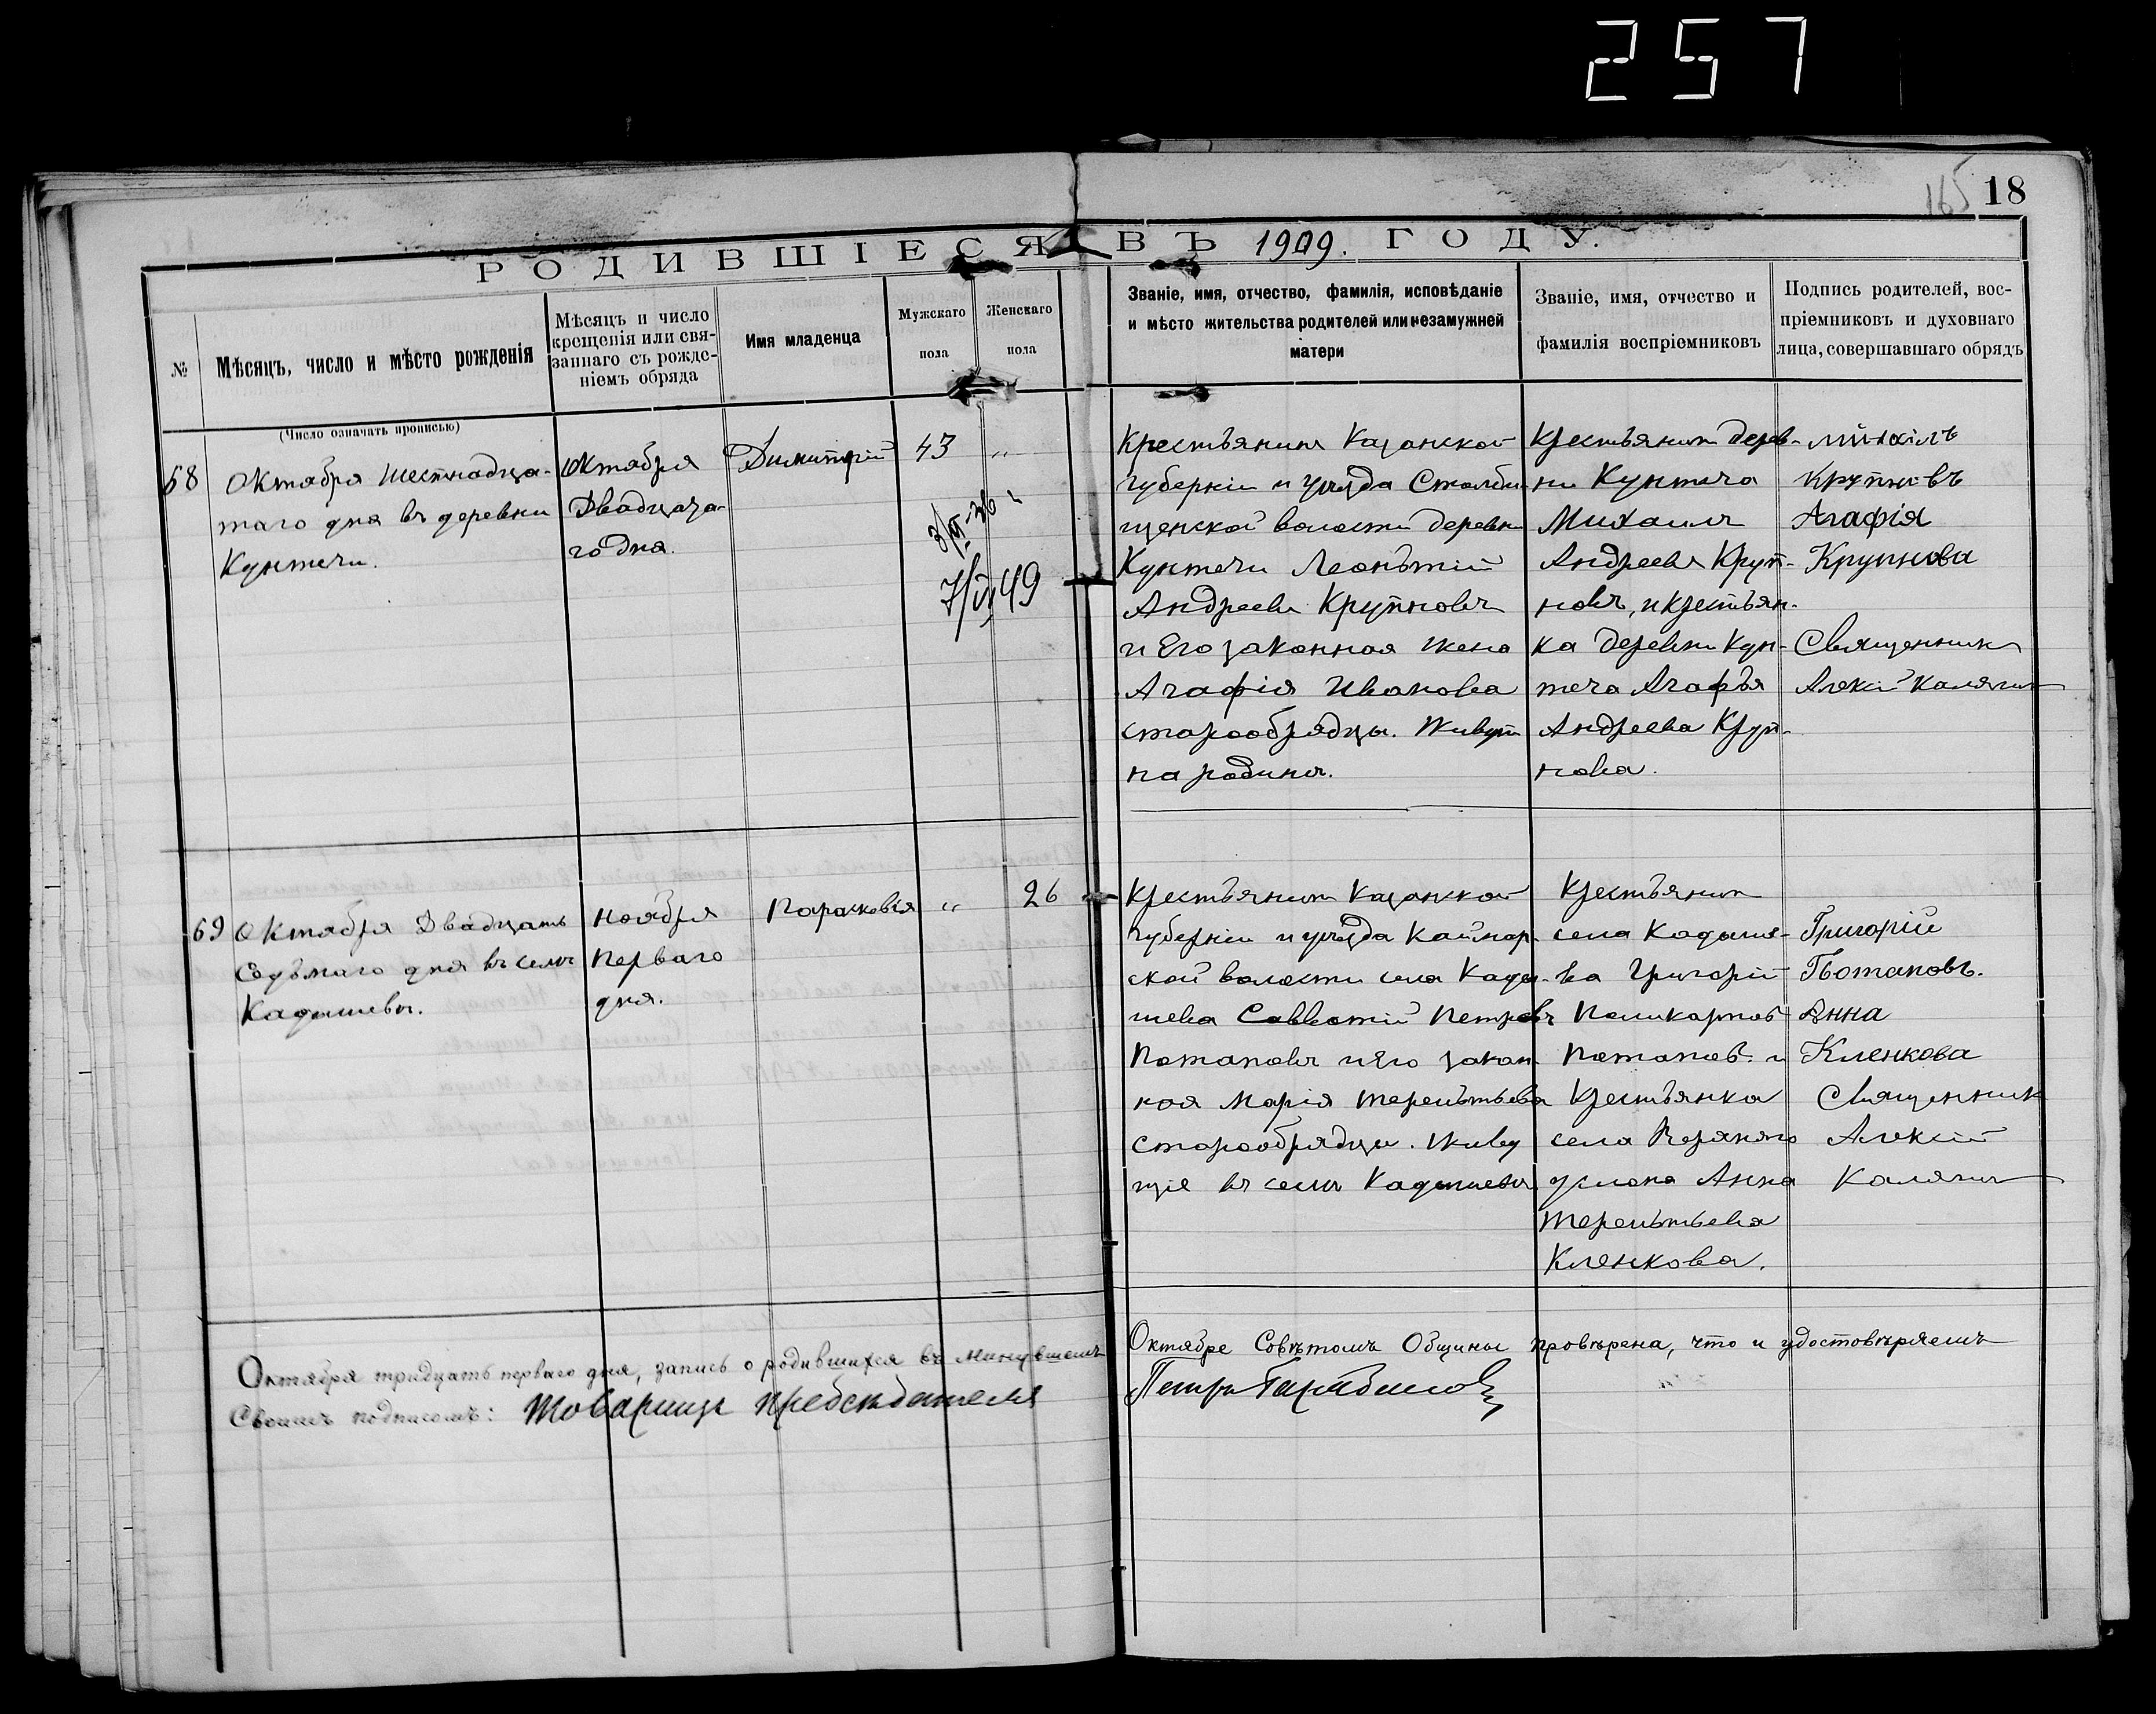 257
165 18
РОДИВШІЕСЯ ВЪ 1909. ГОДУ.
№
Мѣсяцъ, число и мѣсто рожденія
(Число означать прописью)
Мѣсяцъ и число
крещенія или свя-
заннаго съ рожде-
ніемъ обряда
Имя младенца
Мужскаго
пола
Женскаго
пола
Званіе, имя, отчество, фамилія, исповѣданіе
и мѣсто жительства родителей или незамужней
матери
Званіе, имя, отчество и
фамилія воспріемниковъ
Подпись родителей, вос-
пріемниковъ и духовнаго
лица, совершавшаго обрядъ
68
Октября шестнадца-
таго дня въ деревни
Кунтечи.
Октября
Двадцата-
го дня.
Димитрій
43
"
7/VI 49
Крестьянинъ Казанской
губерніи и уѣзда Столби-
щенской волости деревни
Кунтечи Леонътій
Андреевъ Крупновъ
и Его законная жена
Агафія Иванова
старообрядцы. Живутъ
на родинѣ.
Крестьянинъ дерев-
ни Кунтеча
Михаилъ
Андреевъ Круп-
новъ, и крестьян-
ка деревни Кун-
теча Агафъя
Андреева Круп-
нова.
Михаілъ
Крупновъ
Агафія
Крупнова
Священникъ
Алекій Калягинъ
69
Октября Двадцать
Седьмаго дня въ селѣ
Кадышевѣ.
Ноября
Перваго
дня.
Парасковія
"
26
Крестьянинъ Казанской
губерніи и уѣзда Каймар-
ской волости села Кады-
шева Савватій Петровъ
Потаповъ и Его закон-
ная Марія Терентьева
старообрядцы. Живу
щіе въ селѣ Кадышевѣ.
Крестьянинъ
села Кадыше-
ва Григорій
Поликарповъ
Потаповъ и
Крестьянка
села Верхняго
услона Анна
Терентьева
Кленкова.
Григорій
Потаповъ.
Анна
Кленкова
Священникъ
Алексій
Калягинъ
Октября тридцать перваго дня, запись о родившихся въ Минувшемъ
Октябре Совѣтомъ Общины провѣрена, что и удостовѣряемъ
Своимъ подписомъ: Товарищъ предсѣдателя
Петръ